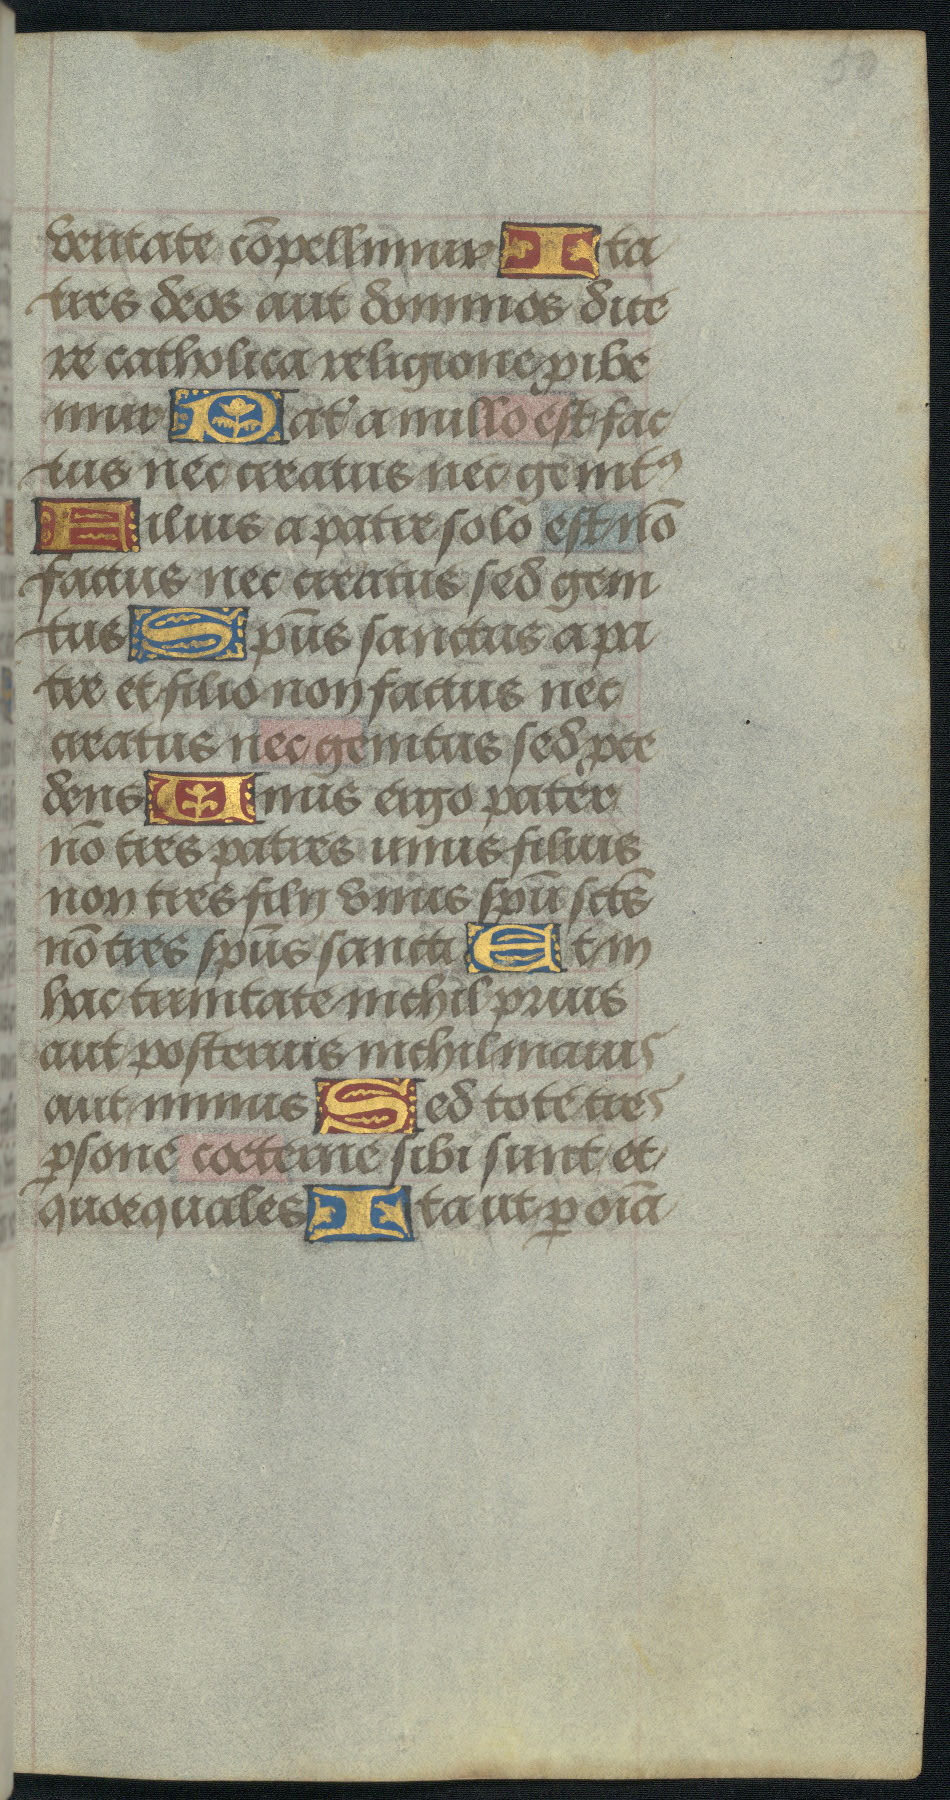 50
veritate cōpellimur Ita
tres deos aut dominos dice
re catholica religione ꝓhibe
mur Pat᾿ a nullo est fac
tus nec creatus nec genitꝰ
Filius a patre solo est nō
factus nec creatus sed geni
tus Spūs sanctus a pa
tre et filio non factus nec
creatus nec genitus sed ꝓce
dens Unus ergo pater
nō tres patres unus filius
non tres filij vnus spūs sctūs
nō tres spūs sancti Et in
hac trinitate nichil prius
aut posterius nichil maius
aut minus Sed tote tres
ꝑsone coeterne sibi sunt et
quoequales Ita ut ꝑ oīa